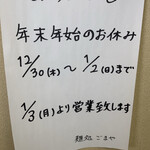 年末年始のお休み
12/30(木)〜1/2(日)まで
1/3(月)より営業致します
麺処 ごまや